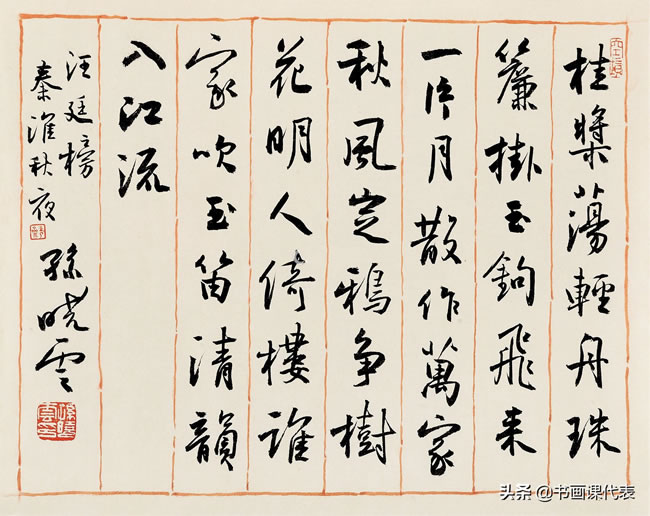 桂槳蕩輕舟珠
簾掛玉鉤飛来
一片月散作萬家
秋風定鴉争樹
花明人倚樓誰
家吹玉笛清韻
入江流
汪廷榜
秦淮秋夜
孫晓雲
孫曉雲印
头条 @书画课代表